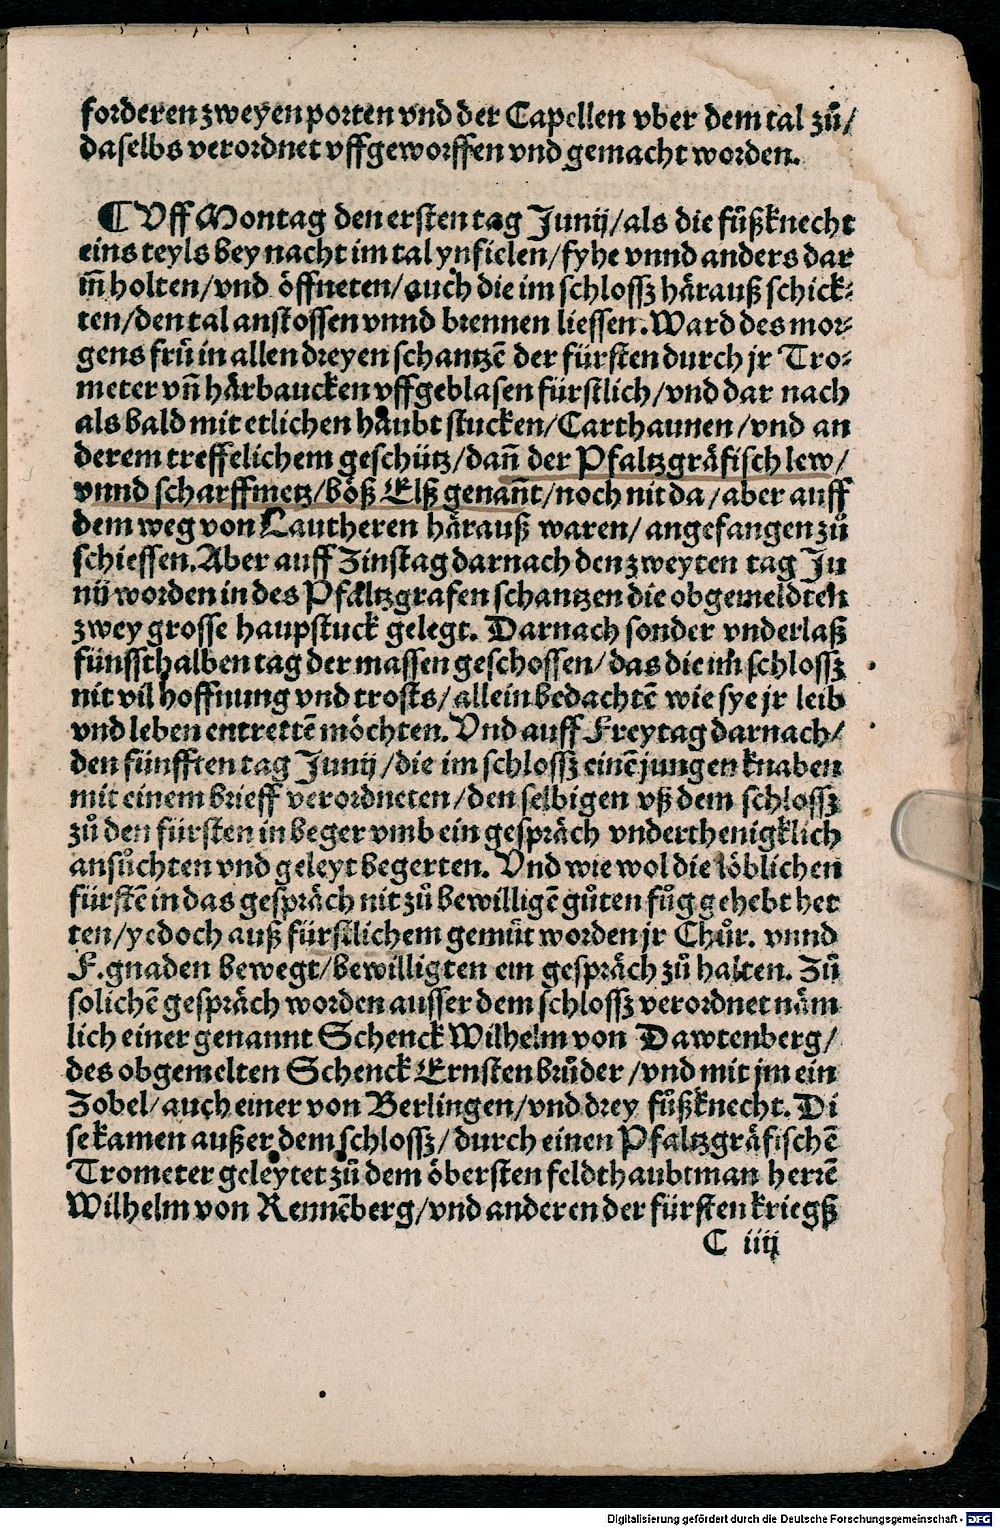 forderen zweyen porten vnd der Capellen vber dem tal zů/
daselbs verordnet vffgeworffen vnd gemacht worden.
¶ Vff Montag den ersten tag Junij/als die fůßknecht
eins teyls bey nacht im tal ynfielen/fyhe vnnd anders dar
iñ holten/vnd öffneten/auch die im schlossz härauß schick⸗
ten/den tal anstossen vnnd brennen liessen. Ward des mor⸗
gens frü in allen dreyen schantzē der fürsten durch jr Tro⸗
meter vñ härbaucken vffgeblasen fürstlich/vnd dar nach
als bald mit etlichen haubt stucken/Carthaunen/vnd an
derem treffelichem geschütz/dañ der Pfaltzgräfisch lew/
vnnd scharffmetz/böß Elß genañt/noch nit da/aber auff
dem weg von Lautheren härauß waren/angefangen zů
schiessen. Aber auff Zinstag darnach den zweyten tag Ju
nij worden in des Pfaltzgrafen schantzen die obgemeldten
zwey grosse haupstuck gelegt. Darnach sonder vnderlaß
fünffthalben tag der massen geschossen/das die im schlossz
nit vil hoffnung vnd trosts/allein bedachtē wie sye jr leib
vnd leben entrettē möchten. Vnd auff Freytag darnach/
den fünfften tag Junij/die im schlossz einē jungen knaben
mit einem brieff verordneten/den selbigen vß dem schlossz
zů den fürsten in beger vmb ein gespräch vnderthenigklich
ansůchten vnd geleyt begerten. Vnd wie wol die löblichen
fürstē in das gespräch nit zů bewilligē gůten fůg gehebt het
ten/yedoch auß fürstlichem gemüt worden jr Chůr. vnnd
F.gnaden bewegt/bewilligten ein gespräch zů halten. Zů
solichē gespräch worden ausser dem schlossz verordnet näm
lich einer genannt Schenck Wilhelm von Dawtenberg/
des obgemelten Schenck Ernsten brůder/vnd mit jm ein
Zobel/auch einer von Berlingen/vnd drey fůßknecht. Di
se kamen außer dem schlossz/durch einen Pfaltzgräfischē
Trometer geleytet zů dem öbersten feldthaubtman herrē
Wilhelm von Rennēberg/vnd anderen der fürsten kriegß
C iiij
Digitalisierung gefördert durch die Deutsche Forschungsgemeinschaft - DFG